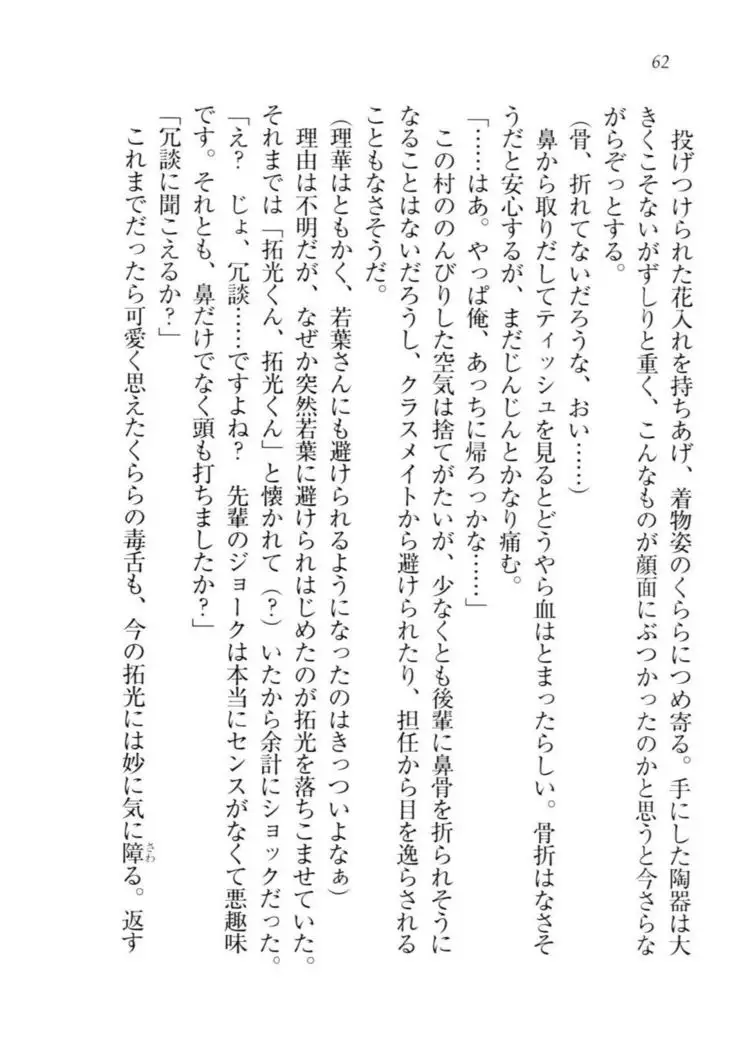 62
投げつけられた花入れを持ちあげ、着物姿のくららにつめ寄る。手にした陶器は大
きくこそないがずしりと重く、こんなものが顔面にぶつかったのかと思うと今さらな
がらぞっとする。
（骨、折れてないだろうな、おい……）
鼻から取りだしてティッシュを見るとどうやら血はとまったらしい。骨折はなさそ
うだと安心するが、まだじんじんとかなり痛む。
「……はあ。やっぱ俺、あっちに帰ろっかな……」
この村ののんびりした空気は捨てがたいが、少なくとも後輩に鼻骨を折られそうに
なることはないだろうし、クラスメイトから避けられたり、担任から目を逸らされる
こともなさそうだ。
（理華はともかく、若葉さんにも避けられるようになったのはきっついよなぁ）
理由は不明だが、なぜか突然若葉に避けられはじめたのが拓光を落ちこませていた。
それまでは「拓光くん、拓光くん」と懐かれて（？）いたから余計にショックだった。
「え？　じょ、冗談……ですよね？　先輩のジョークは本当にセンスがなくて悪趣味
です。それとも、鼻だけでなく頭も打ちましたか？」
「冗談に聞こえるか？」
これまでだったら可愛く思えたくららの毒舌も、今の拓光には妙に気に障る。返す
さわ